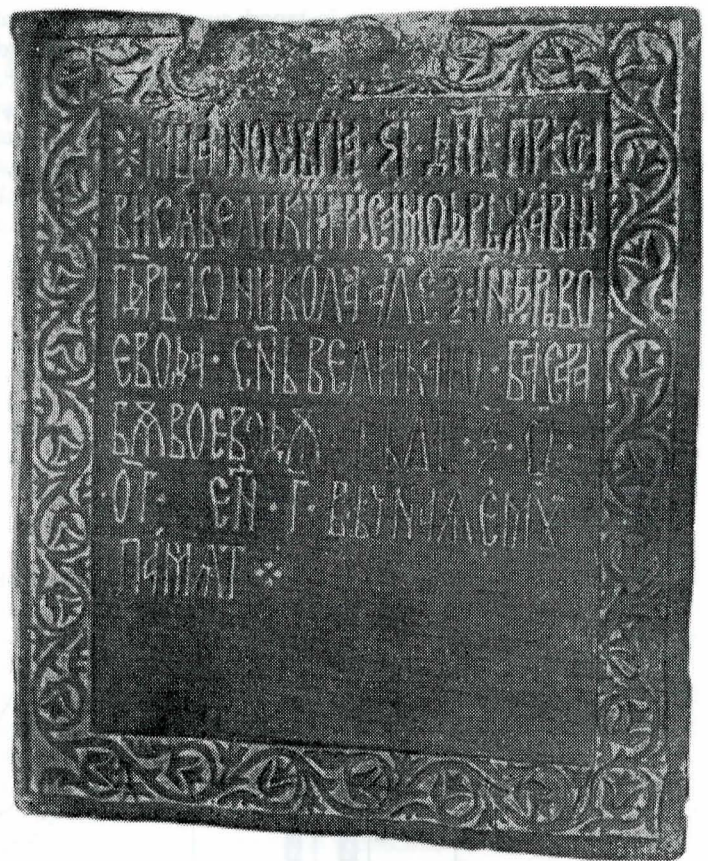 ※ МЦА НОЕВРІА · ЅІ · ДН҃Ь ПРѢСТА
ВИСѦ ВЕЛИКЇИ И САМОДРЬЖАВНЇ
ГДРЬ · ІѠ НИКОЛА АЛЕѮАНДРЬ ВО
ЕВОДА · СН҃Ь ВЕЛИКАГО · БАСАРА
БѪ ВОЕВОДѪ · · Ѡ ·
ОГ · ЕН · Г · ВѢЧНАА ЕМУ
ПАМѦТ